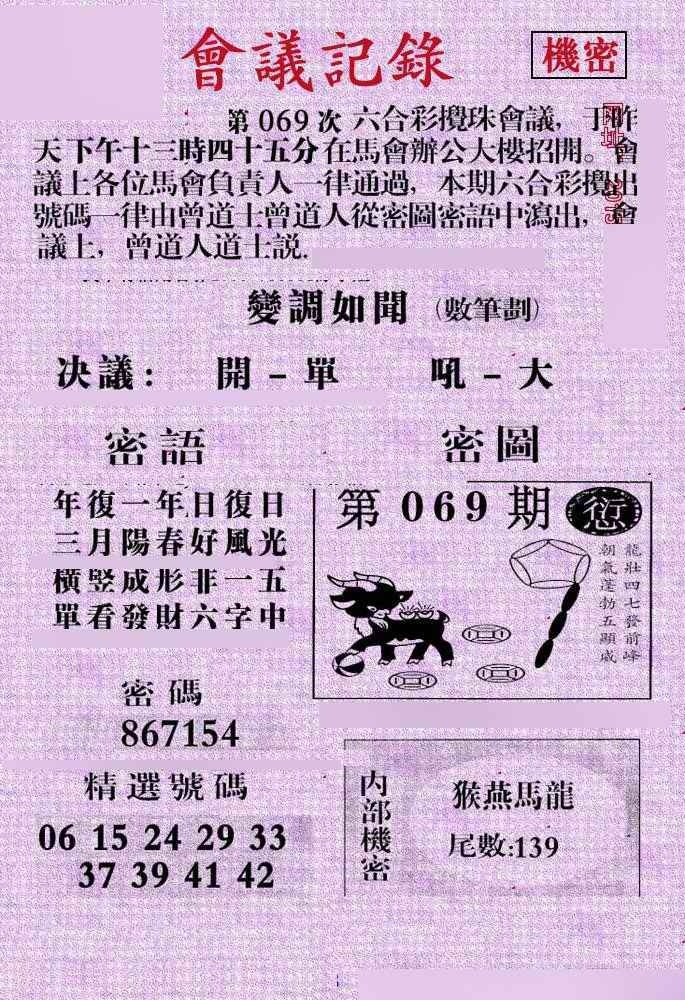 會議記錄
機密
第 069 次 六合彩攪珠會議，于昨
天下午十三時四十五分在馬會辦公大樓招開。會
議上各位馬會負責人一律通過，本期六合彩攪出
號碼一律由曾道士曾道人從密圖密語中瀉出，會
議上，曾道人道士説.
變調如聞（數筆劃）
决議: 開 - 單 吼 - 大
密語
年復一年日復日
三月陽春好風光
橫竪成形非一五
單看發財六字中
密圖
第 069 期
龍壯四七發前峰
朝氣蓬勃五顯威
密碼
867154
精選號碼
06 15 24 29 33
37 39 41 42
内部機密
猴燕馬龍
尾數:139